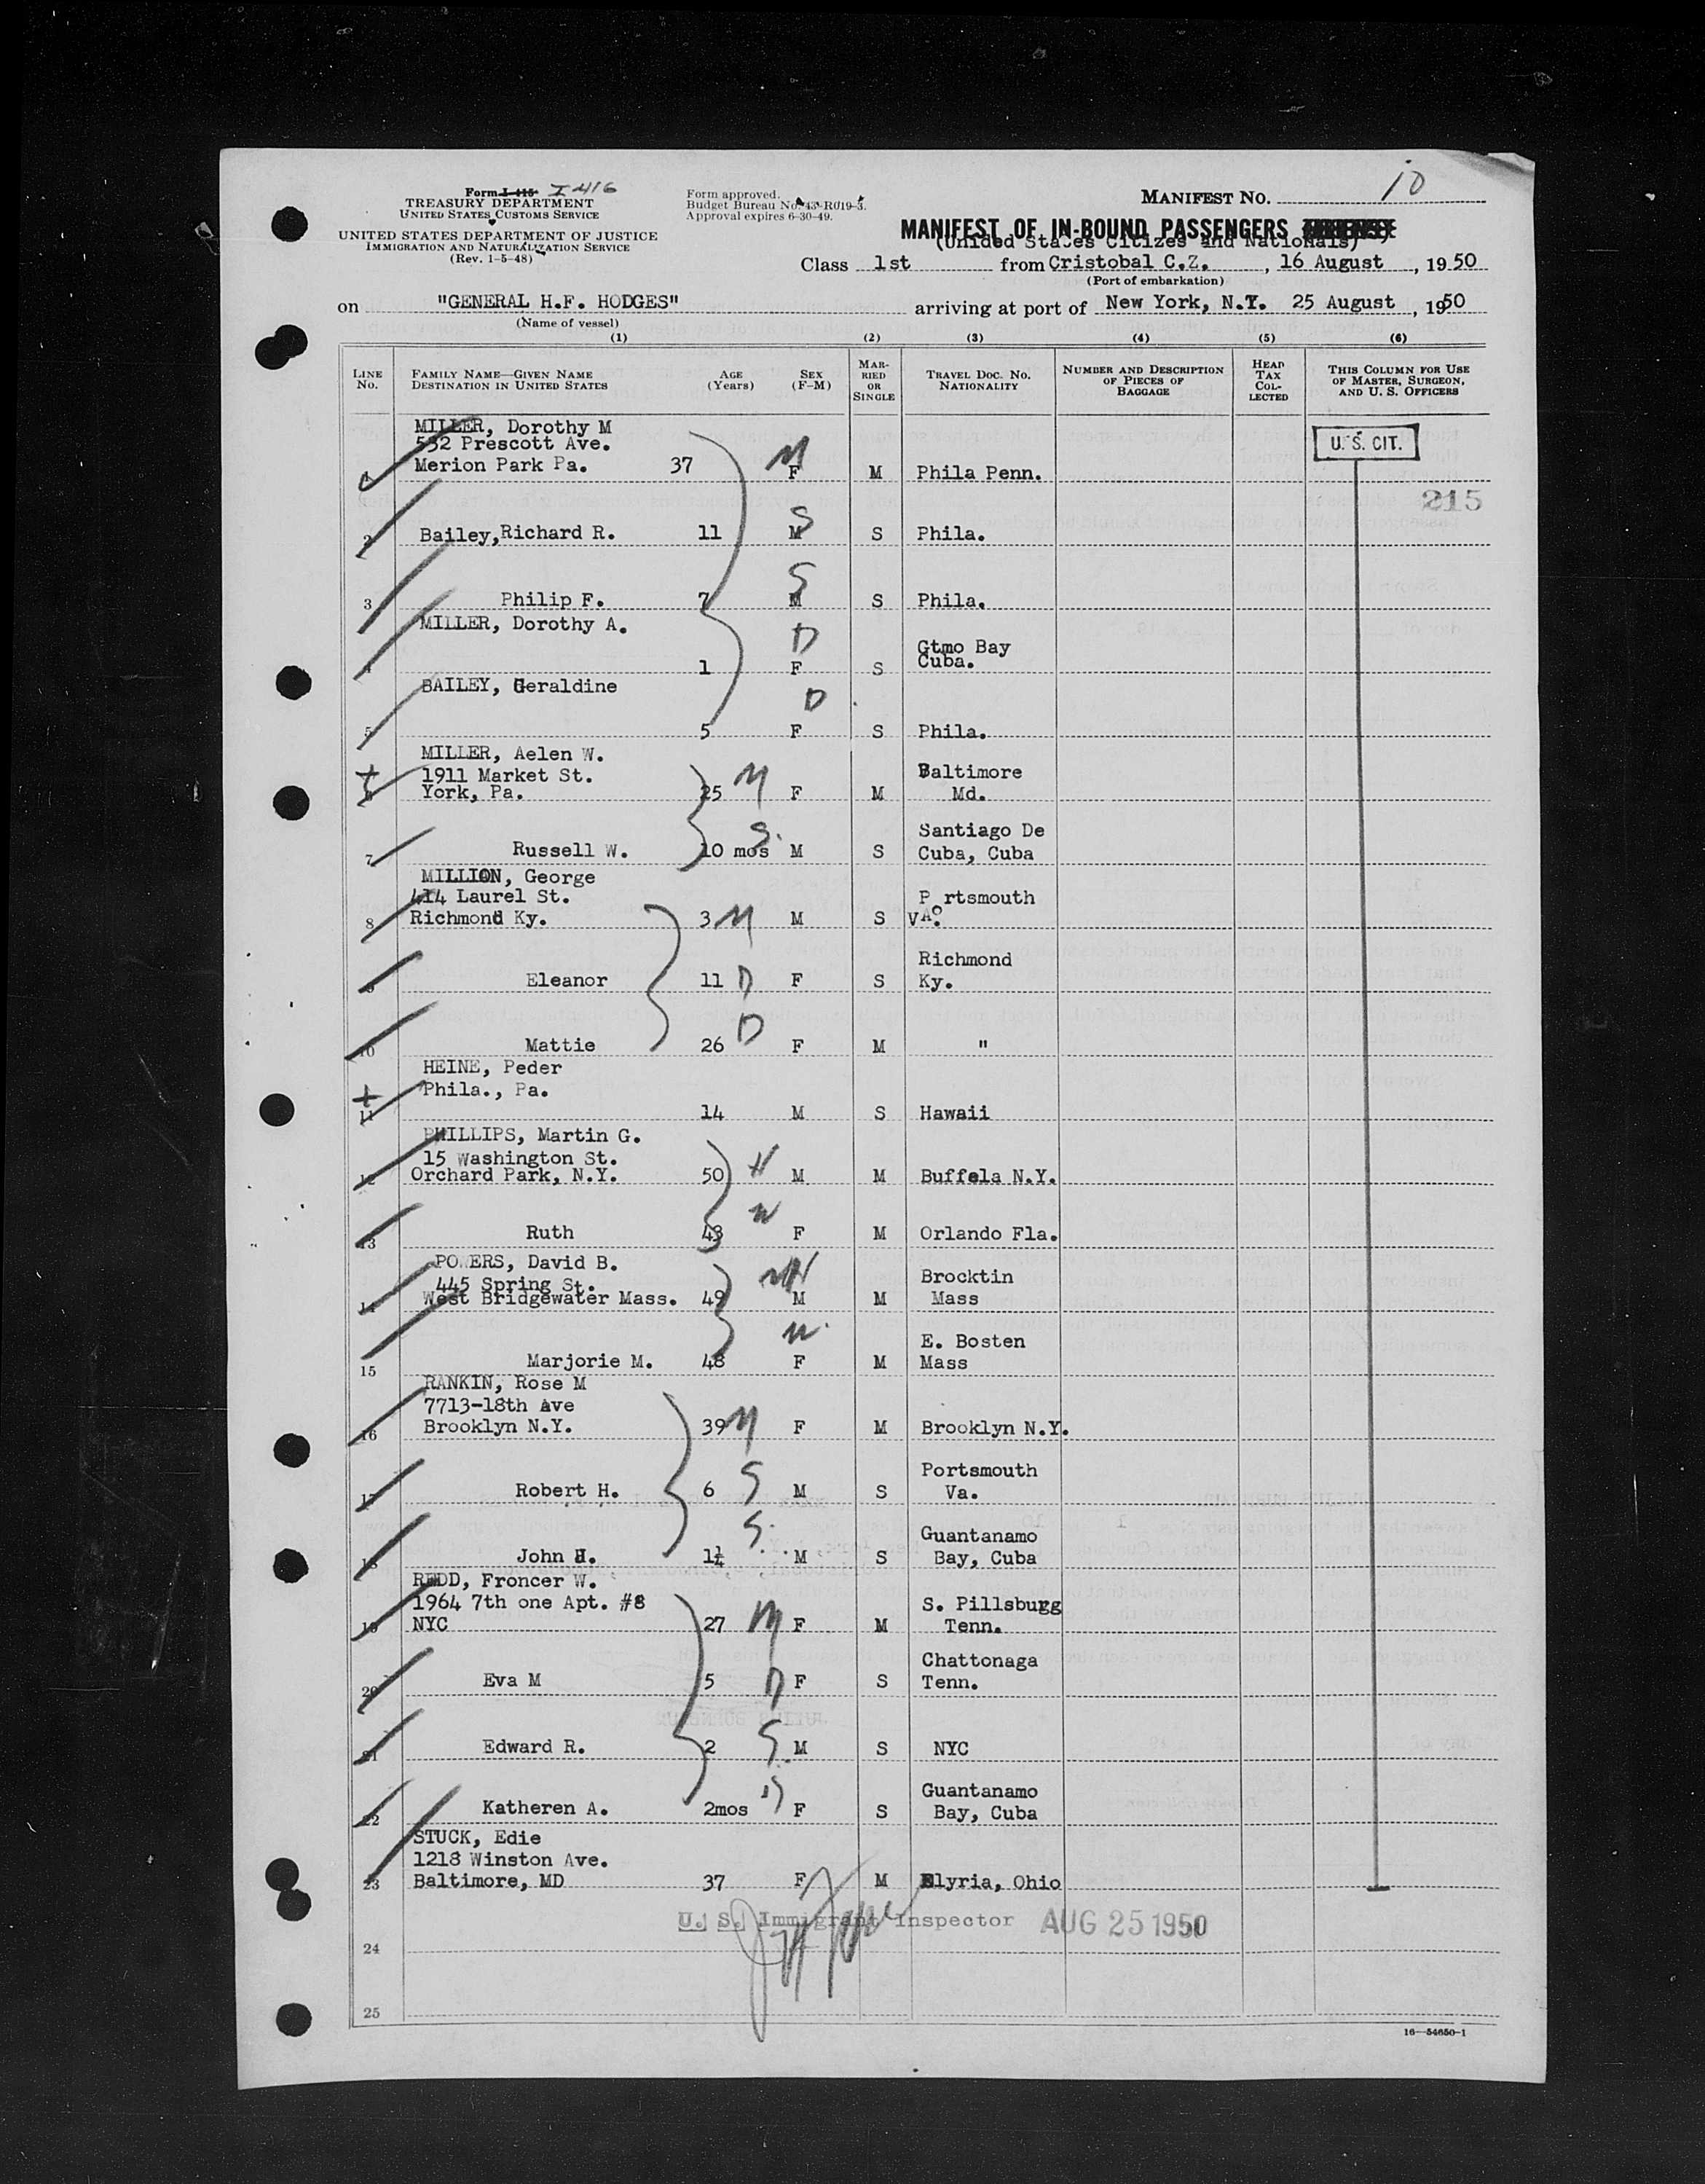 Form I-415 I 416
TREASURY DEPARTMENT
UNITED STATES CUSTOMS SERVICE
UNITED STATES DEPARTMENT OF JUSTICE
IMMIGRATION AND NATURALIZATION SERVICE
(Rev. 1-5-48)
Form approved.
Budget Bureau No. 43-R019-3.
Approval expires 6-30-49.
MANIFEST NO. 10
MANIFEST OF IN-BOUND PASSENGERS
(Unided States Citizes and Nationals)
Class 1st from Cristobal C.Z., 16 August, 1950
(Port of embarkation)
on "GENERAL H.F. HODGES" arriving at port of New York, N.Y. 25 August, 1950
(Name of vessel)
(1) (2) (3) (4) (5) (6)
LINE No. FAMILY NAME—GIVEN NAME DESTINATION IN UNITED STATES AGE (Years) SEX (F–M) MARRIED OR SINGLE TRAVEL DOC. NO. NATIONALITY NUMBER AND DESCRIPTION OF PIECES OF BAGGAGE HEAD TAX COLLECTED THIS COLUMN FOR USE OF MASTER, SURGEON, AND U. S. OFFICERS
MILLER, Dorothy M
532 Prescott Ave.
1 Merion Park Pa. 37 M F M Phila Penn. U. S. CIT.
215
2 Bailey, Richard R. 11 S M S Phila.
3 Philip F. 7 S M S Phila.
MILLER, Dorothy A. D Gtmo Bay
4 1 F S Cuba.
BAILEY, Geraldine D
5 5 F S Phila.
MILLER, Aelen W.
1911 Market St. Baltimore
6 York, Pa. 25 M F M Md.
Santiago De
7 Russell W. 10 mos S. M S Cuba, Cuba
MILLION, George
414 Laurel St. Portsmouth
8 Richmond Ky. 3 M M S VA.
Richmond
9 Eleanor 11 D F S Ky.
10 Mattie 26 D F M "
HEINE, Peder
Phila., Pa.
11 14 M S Hawaii
PHILLIPS, Martin G.
15 Washington St.
12 Orchard Park, N.Y. 50 H M M Buffela N.Y.
13 Ruth 43 W F M Orlando Fla.
POWERS, David B.
445 Spring St. Brocktin
14 West Bridgewater Mass. 49 H M M Mass
E. Bosten
15 Marjorie M. 48 W. F M Mass
RANKIN, Rose M
7713-18th Ave
16 Brooklyn N.Y. 39 M F M Brooklyn N.Y.
Portsmouth
17 Robert H. 6 S M S Va.
Guantanamo
18 John H. 1¼ S. M S Bay, Cuba
REDD, Froncer W.
1964 7th one Apt. #8 S. Pillsburgg
19 NYC 27 M F M Tenn.
Chattonaga
20 Eva M 5 D F S Tenn.
21 Edward R. 2 S M S NYC
Guantanamo
22 Katheren A. 2mos D F S Bay, Cuba
STUCK, Edie
1218 Winston Ave.
23 Baltimore, MD 37 F M Elyria, Ohio
U. S. Immigrant Inspector AUG 25 1950
24
25
16—54650-1